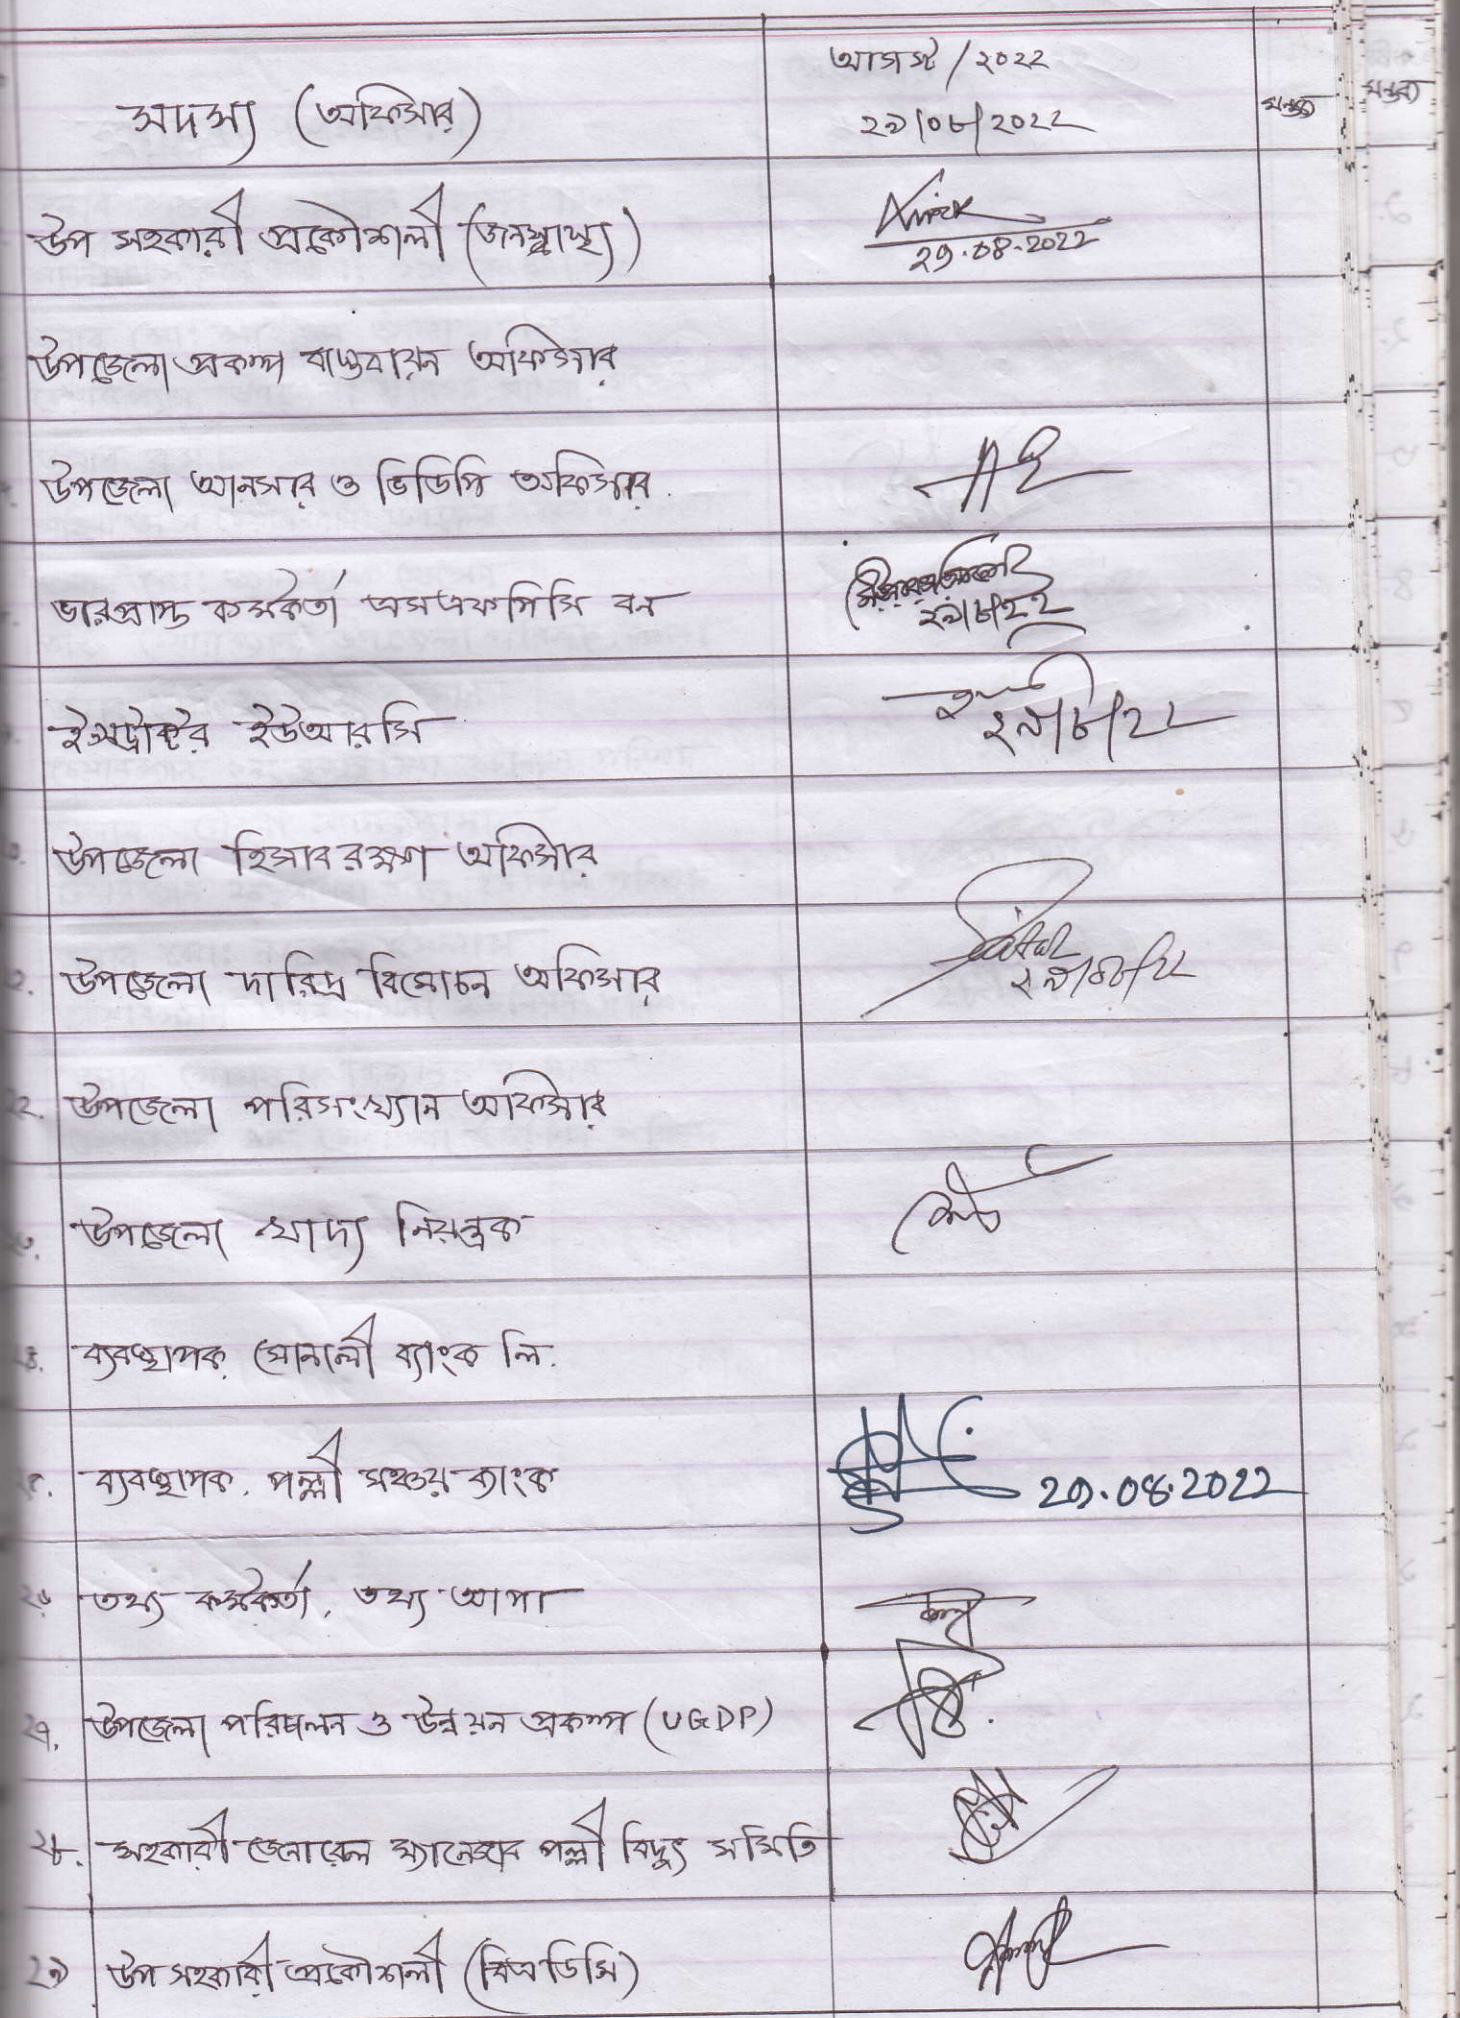 আগস্ট/২০২২
সদস্য (অফিসার)
২৯/০৮/২০২২
মন্তব্য
মন্তব্য
উপ সহকারী প্রকৌশলী (জনস্বাস্থ্য)
২৯.০৮.২০২২
উপজেলা প্রকল্প বাস্তবায়ন অফিসার
উপজেলা আনসার ও ভিডিপি অফিসার
ভারপ্রাপ্ত কর্মকর্তা এসএফপিসি বন
২৯/৮/২২
ইন্সট্রাক্টর ইউআরসি
২৯/৮/২২
উপজেলা হিসাব রক্ষণ অফিসার
উপজেলা দারিদ্র বিমোচন অফিসার
২৯/০৮/২২
উপজেলা পরিসংখ্যান অফিসার
উপজেলা খাদ্য নিয়ন্ত্রক
ব্যবস্থাপক, সোনালী ব্যাংক লি.
ব্যবস্থাপক, পল্লী সঞ্চয় ব্যাংক
২৯.০৮.২০২২
২৬. তথ্য কর্মকর্তা, তথ্য আপা
২৭. উপজেলা পরিচালন ও উন্নয়ন প্রকল্প (UGDP)
২৮. সহকারী জেনারেল ম্যানেজার পল্লী বিদ্যুৎ সমিতি
২৯ উপ সহকারী প্রকৌশলী (বিএডিসি)